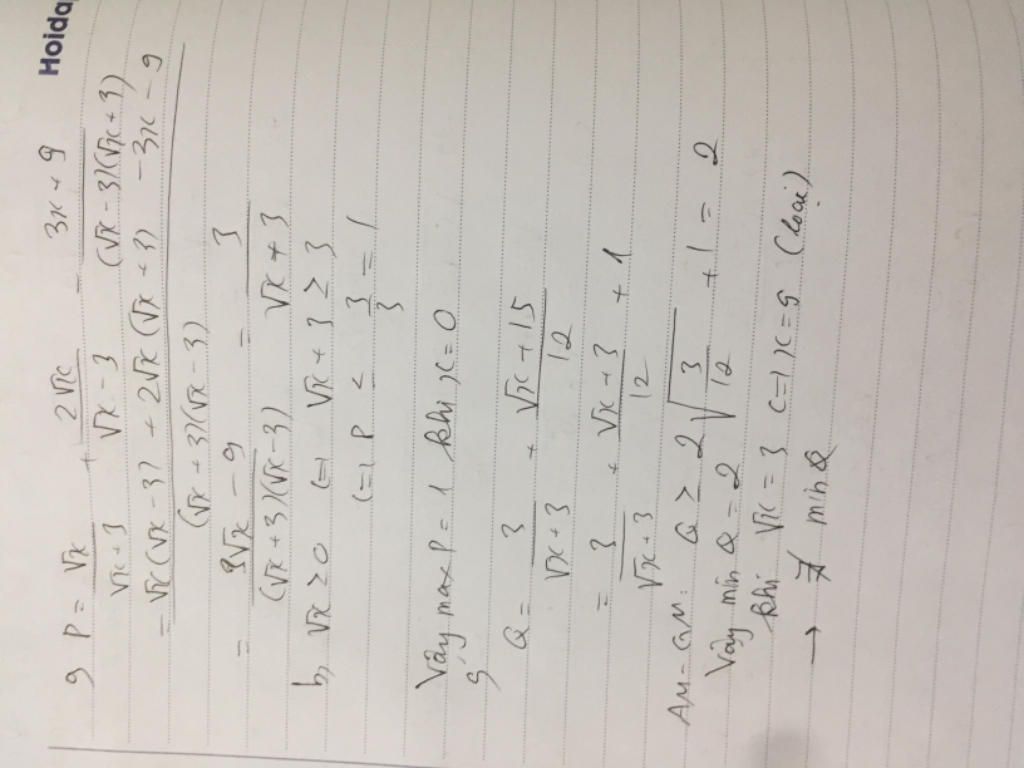 Hoidap
a, P = √x/(√x+3) + 2√x/(√x-3) - (3x+9)/((√x-3)(√x+3))
= (√x(√x-3) + 2√x(√x+3) -3x-9)/((√x+3)(√x-3))
= (3√x-9)/((√x+3)(√x-3)) = 3/(√x+3)
b, √x ≥ 0 (=) √x+3 ≥ 3
(=) P ≤ 3/3 = 1
Vậy max P = 1 khi x=0
c,
Q = 3/(√x+3) + (√x+15)/12
= 3/(√x+3) + (√x+3)/12 + 1
AM-GM: Q ≥ 2√(3/12) + 1 = 2
Vậy min Q = 2
khi √x = 3 (=) x=9 (loại)
→ ∄ min Q